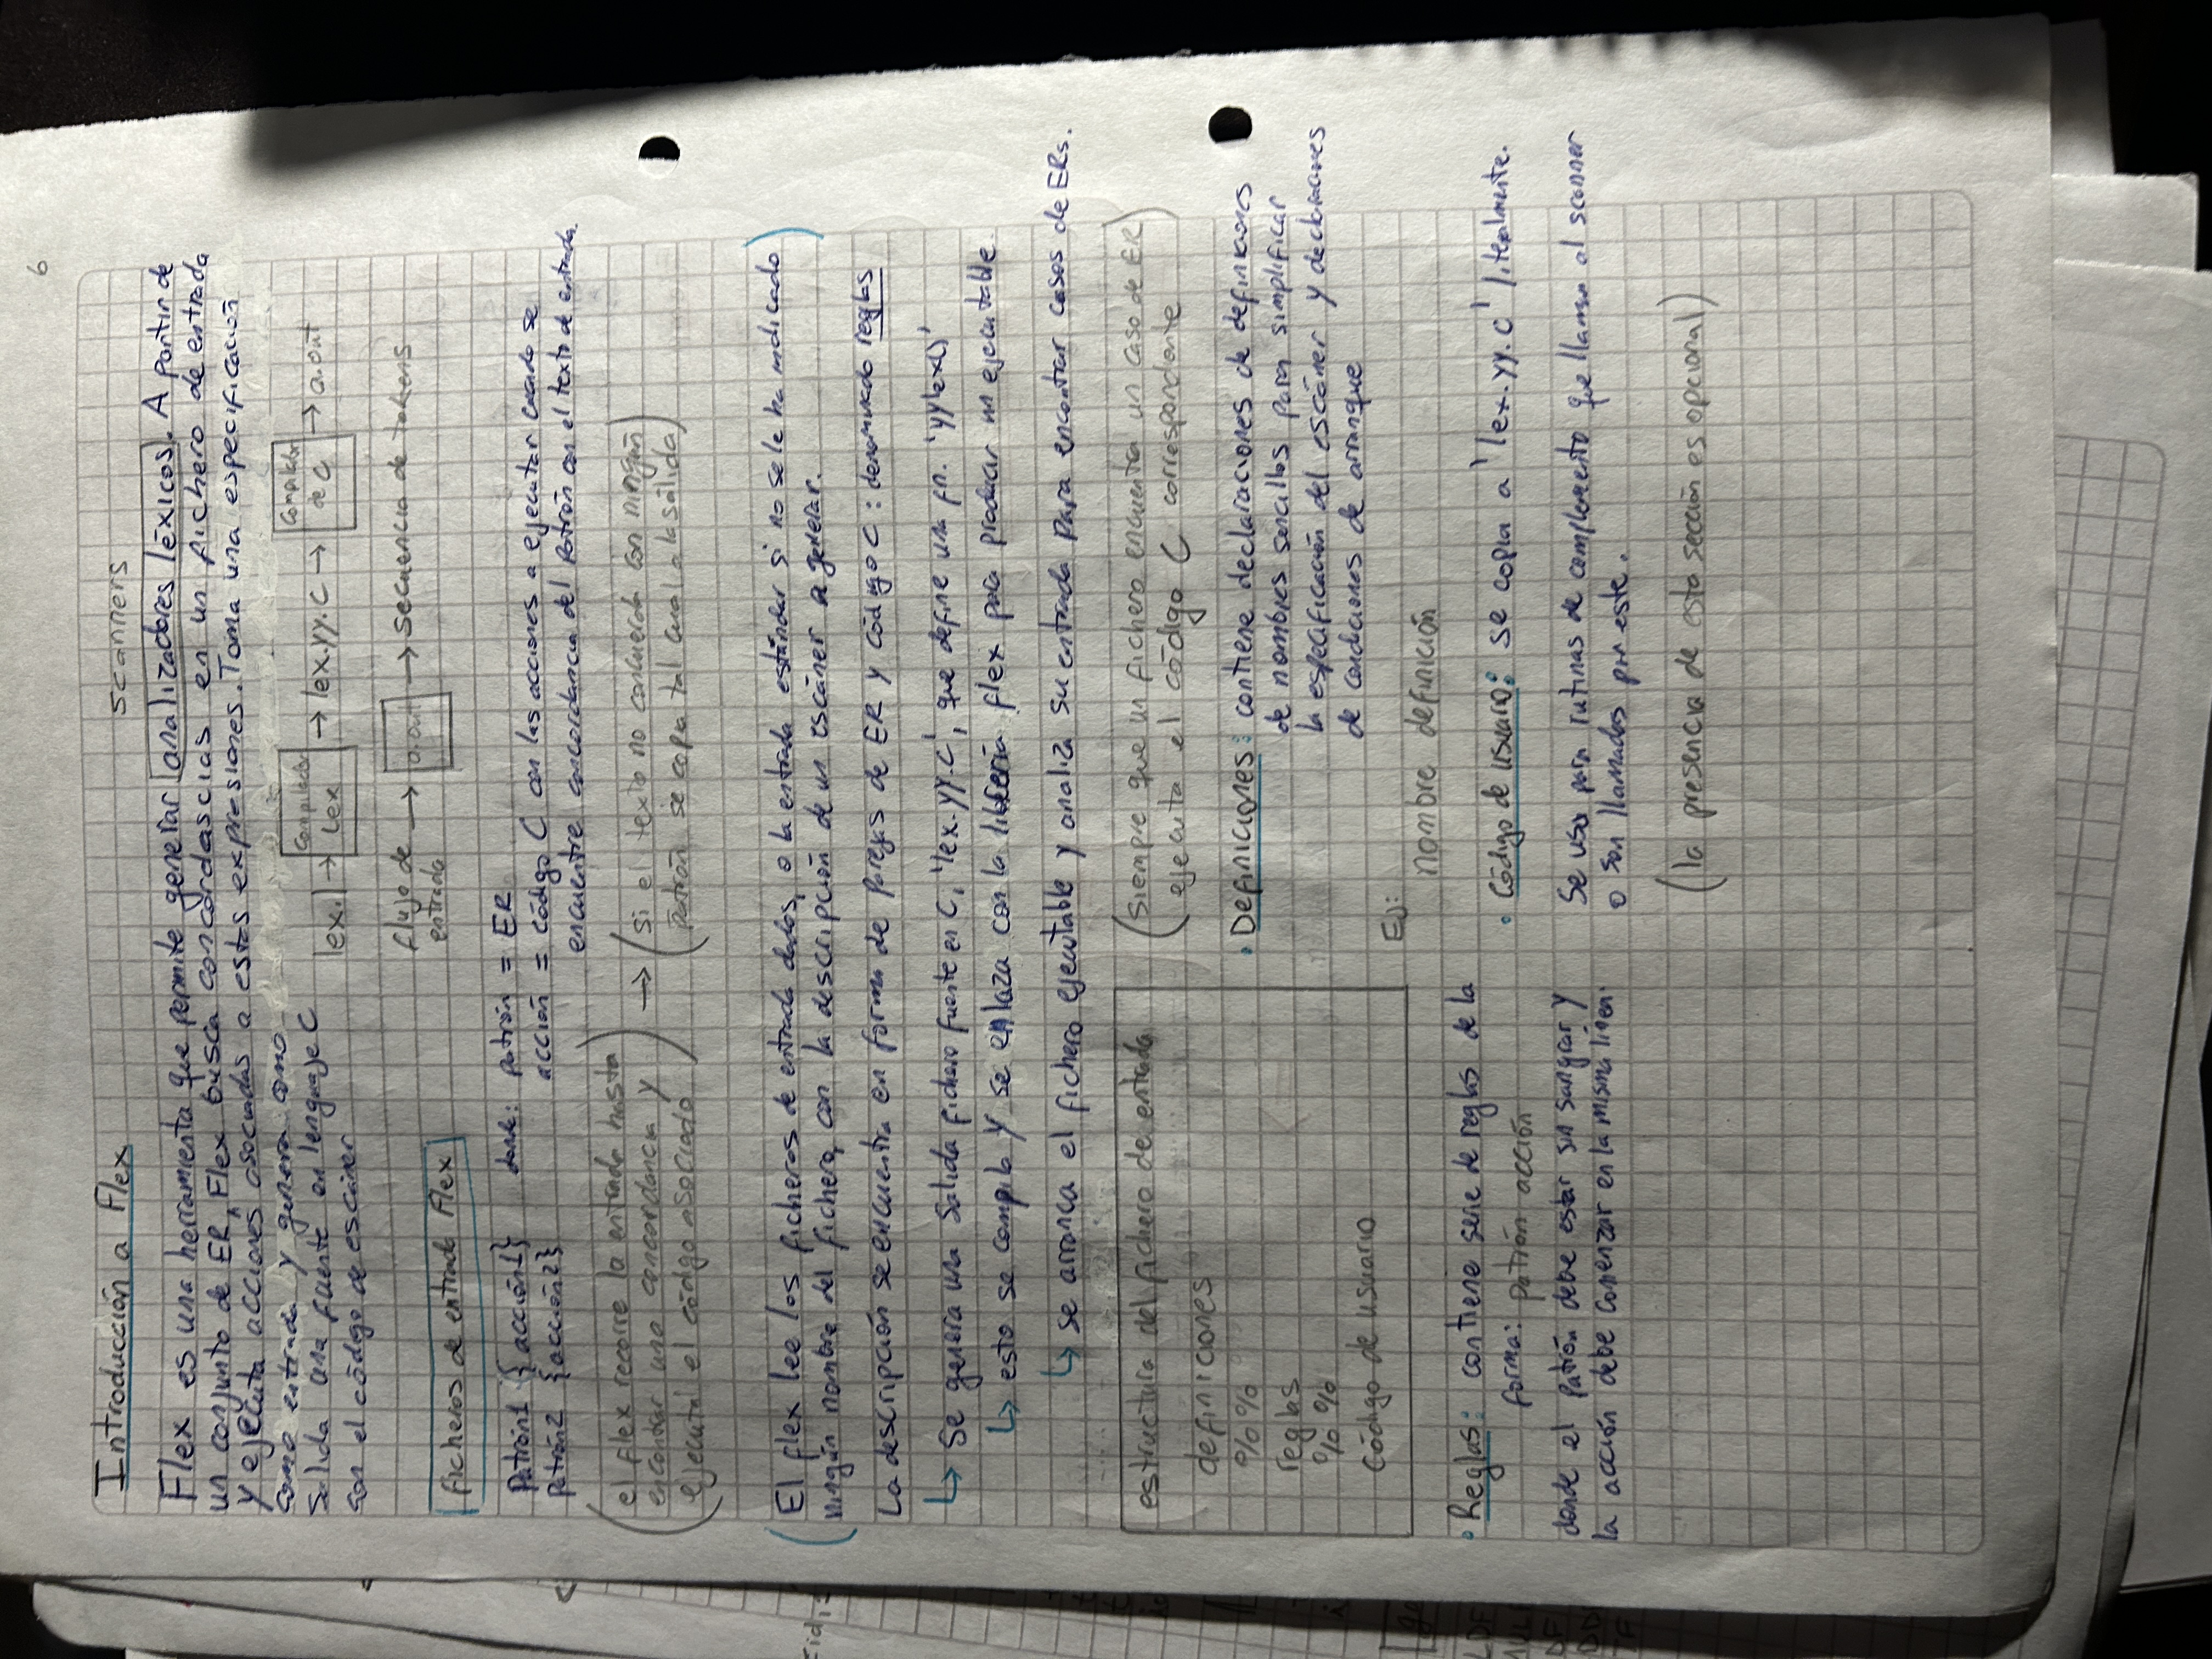 6
Introducción a Flex
scanners
Flex es una herramienta que permite generar analizadores léxicos. A partir de
un conjunto de ER, Flex busca concordascias en un fichero de entrada
y ejecuta acciones asociadas a estas expresiones. Toma una especificación
como entrada y genera como
salida una fuente en lenguaje C
con el código de escáner
lex.l → Compilador Lex → lex.yy.c → Compilador de C → a.out
flujo de entrada → a.out → secuencia de tokens
ficheros de entrada Flex
Patrón1 {acción1} donde: patrón = ER
Patrón2 {acción2} acción = código C con las acciones a ejecutar cuando se
encuentre concordancia del patrón con el texto de entrada.
(el flex recorre la entrada hasta
encontrar una concordancia y
ejecuta el código asociado)
→ (si el texto no concuerda con ningún
patrón se copia tal cual a la salida)
(El flex lee los ficheros de entrada dados, o la entrada estándar si no se le ha indicado
ningún nombre del fichero, con la descripción de un escáner a generar.)
La descripción se encuentra en forma de parejas de ER y código C: denominado reglas
↳ Se genera una salida fichero fuente en C, 'lex.yy.c', que define una fn. 'yylex()'
↳ esto se compila y se enlaza con la librería flex para producir un ejecutable
↳ se arranca el fichero ejecutable y analiza su entrada para encontrar casos de ERs.
estructura del fichero de entrada
definiciones
%%
reglas
%%
código de usuario
(siempre que un fichero encuentra un caso de ER
ejecuta el código C correspondante)
• Definiciones: contiene declaraciones de definiciones
de nombres sencillos para simplificar
la especificación del escáner y declaraciones
de condiciones de arranque
Ej:
nombre definición
• Reglas: contiene serie de reglas de la
forma: patrón acción
donde el patrón debe estar sin sangrar y
la acción debe comenzar en la misma línea.
• Código de usuario: se copia a 'lex.yy.c' literalmente.
Se usa para rutinas de complemento que llaman al scanner
o son llamados por este.
(la presencia de esta sección es opcional)